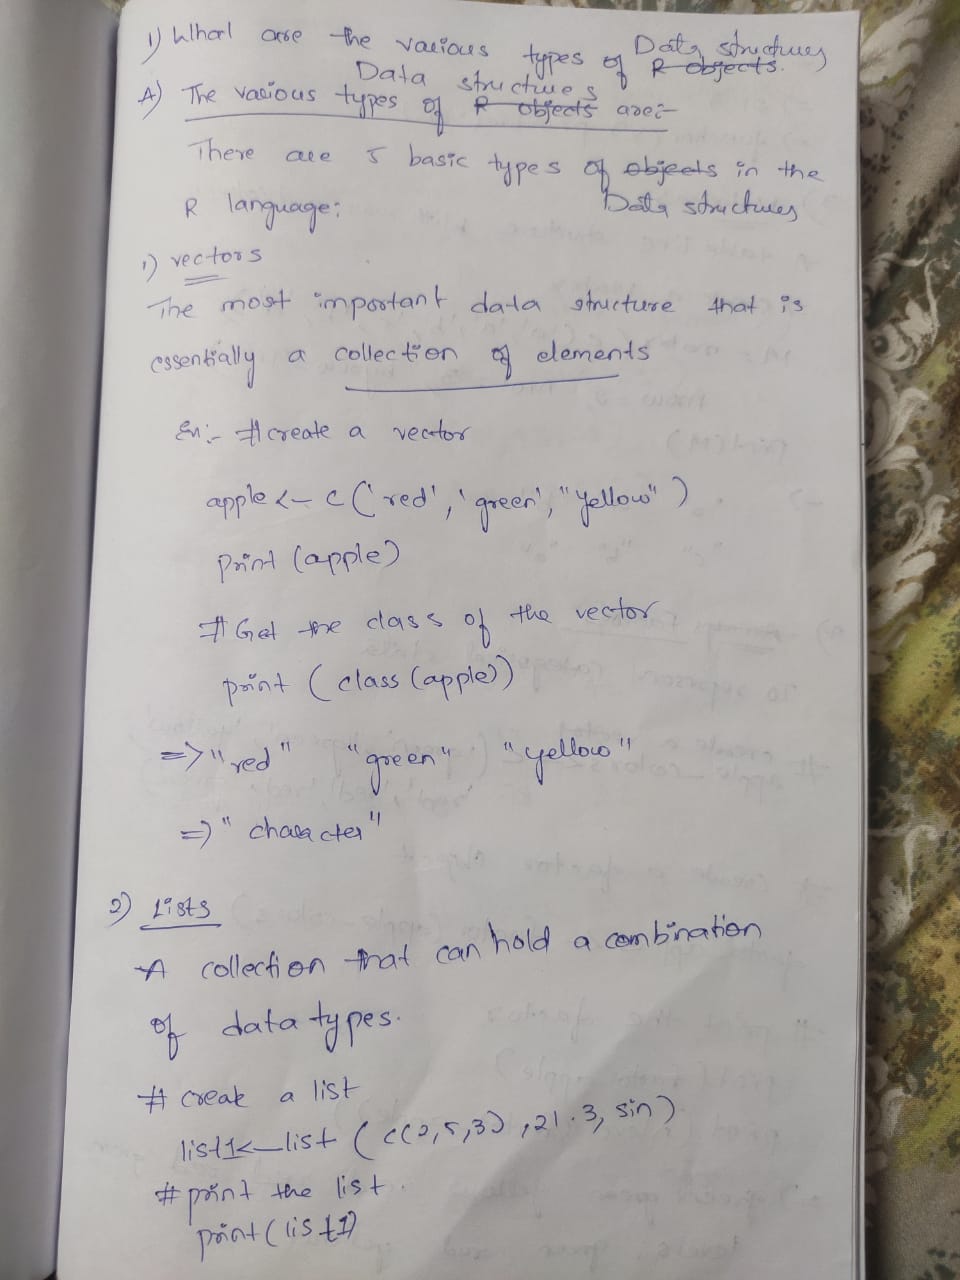 1) What are the various types of Data structures R objects.
A) The various types of Data structures R objects are:-
There are 5 basic types of objects in the
R language: Data structures
1) vectors
The most important data structure that is
essentially a collection of elements
Ex:- # create a vector
apple <- c('red', 'green', "yellow")
print (apple)
# Get the class of the vector
print (class (apple))
=> "red" "green" "yellow"
=> "character"
2) Lists
A collection that can hold a combination
of data types.
# create a list
list1 <- list (c(2,5,3), 21.3, sin)
# print the list.
print(list1)